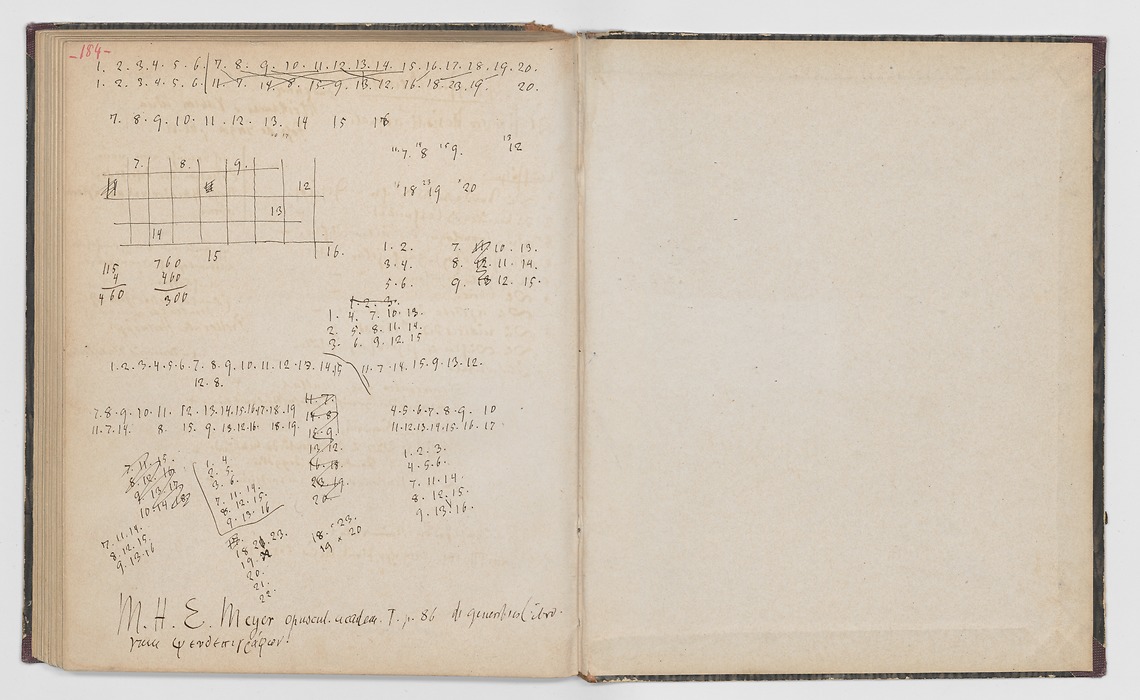 -184-
1. 2. 3. 4. 5. 6. 7. 8. 9. 10. 11. 12. 13. 14. 15. 16. 17. 18. 19. 20.
1. 2. 3. 4. 5. 6. 11. 7. 14. 8. 15. 9. 13. 12. 16. 18. 23. 19. 20.
7. 8. 9. 10. 11. 12. 13. 14 15 16
16 17
11 7. 14 8 15 9. 13 12
18 23 19 20
7. 8. 9.
12
13
14
15 16.
1. 2. 7. 10. 13.
3. 4. 8. 11. 14.
5. 6. 9. 12. 15.
115 760
4 460
460 300
1. 2. 3.
1. 4. 7. 10. 13.
2. 5. 8. 11. 14.
3. 6. 9. 12. 15
1. 2. 3. 4. 5. 6. 7. 8. 9. 10. 11. 12. 13. 14. 15 11. 7. 14. 15. 9. 13. 12.
12. 8.
7. 8. 9. 10. 11. 12. 13. 14. 15. 16. 17. 18. 19
11. 7. 14. 8. 15. 9. 13. 12. 16. 18. 19.
11. 7.
14. 8.
15. 9.
13. 12.
16. 18.
23. 19.
20
4. 5. 6. 7. 8. 9. 10
11. 12. 13. 14. 15. 16. 17
7. 11. 15.
8. 12. 16
9. 13. 17
10. 14. 18
1. 4
2. 5.
3. 6.
7. 11. 14.
8. 12. 15.
9. 13. 16
1. 2. 3.
4. 5. 6.
7. 11. 14.
8. 12. 15.
9. 13. 16.
7. 11. 14.
8. 12. 15.
9. 13. 16
18 23.
19.
20.
21.
22.
18. 23.
19 20
M. H. E. Meyer opuscul. academ. T. p. 86 de generibus libro-
rum ψευδεπιγράφων